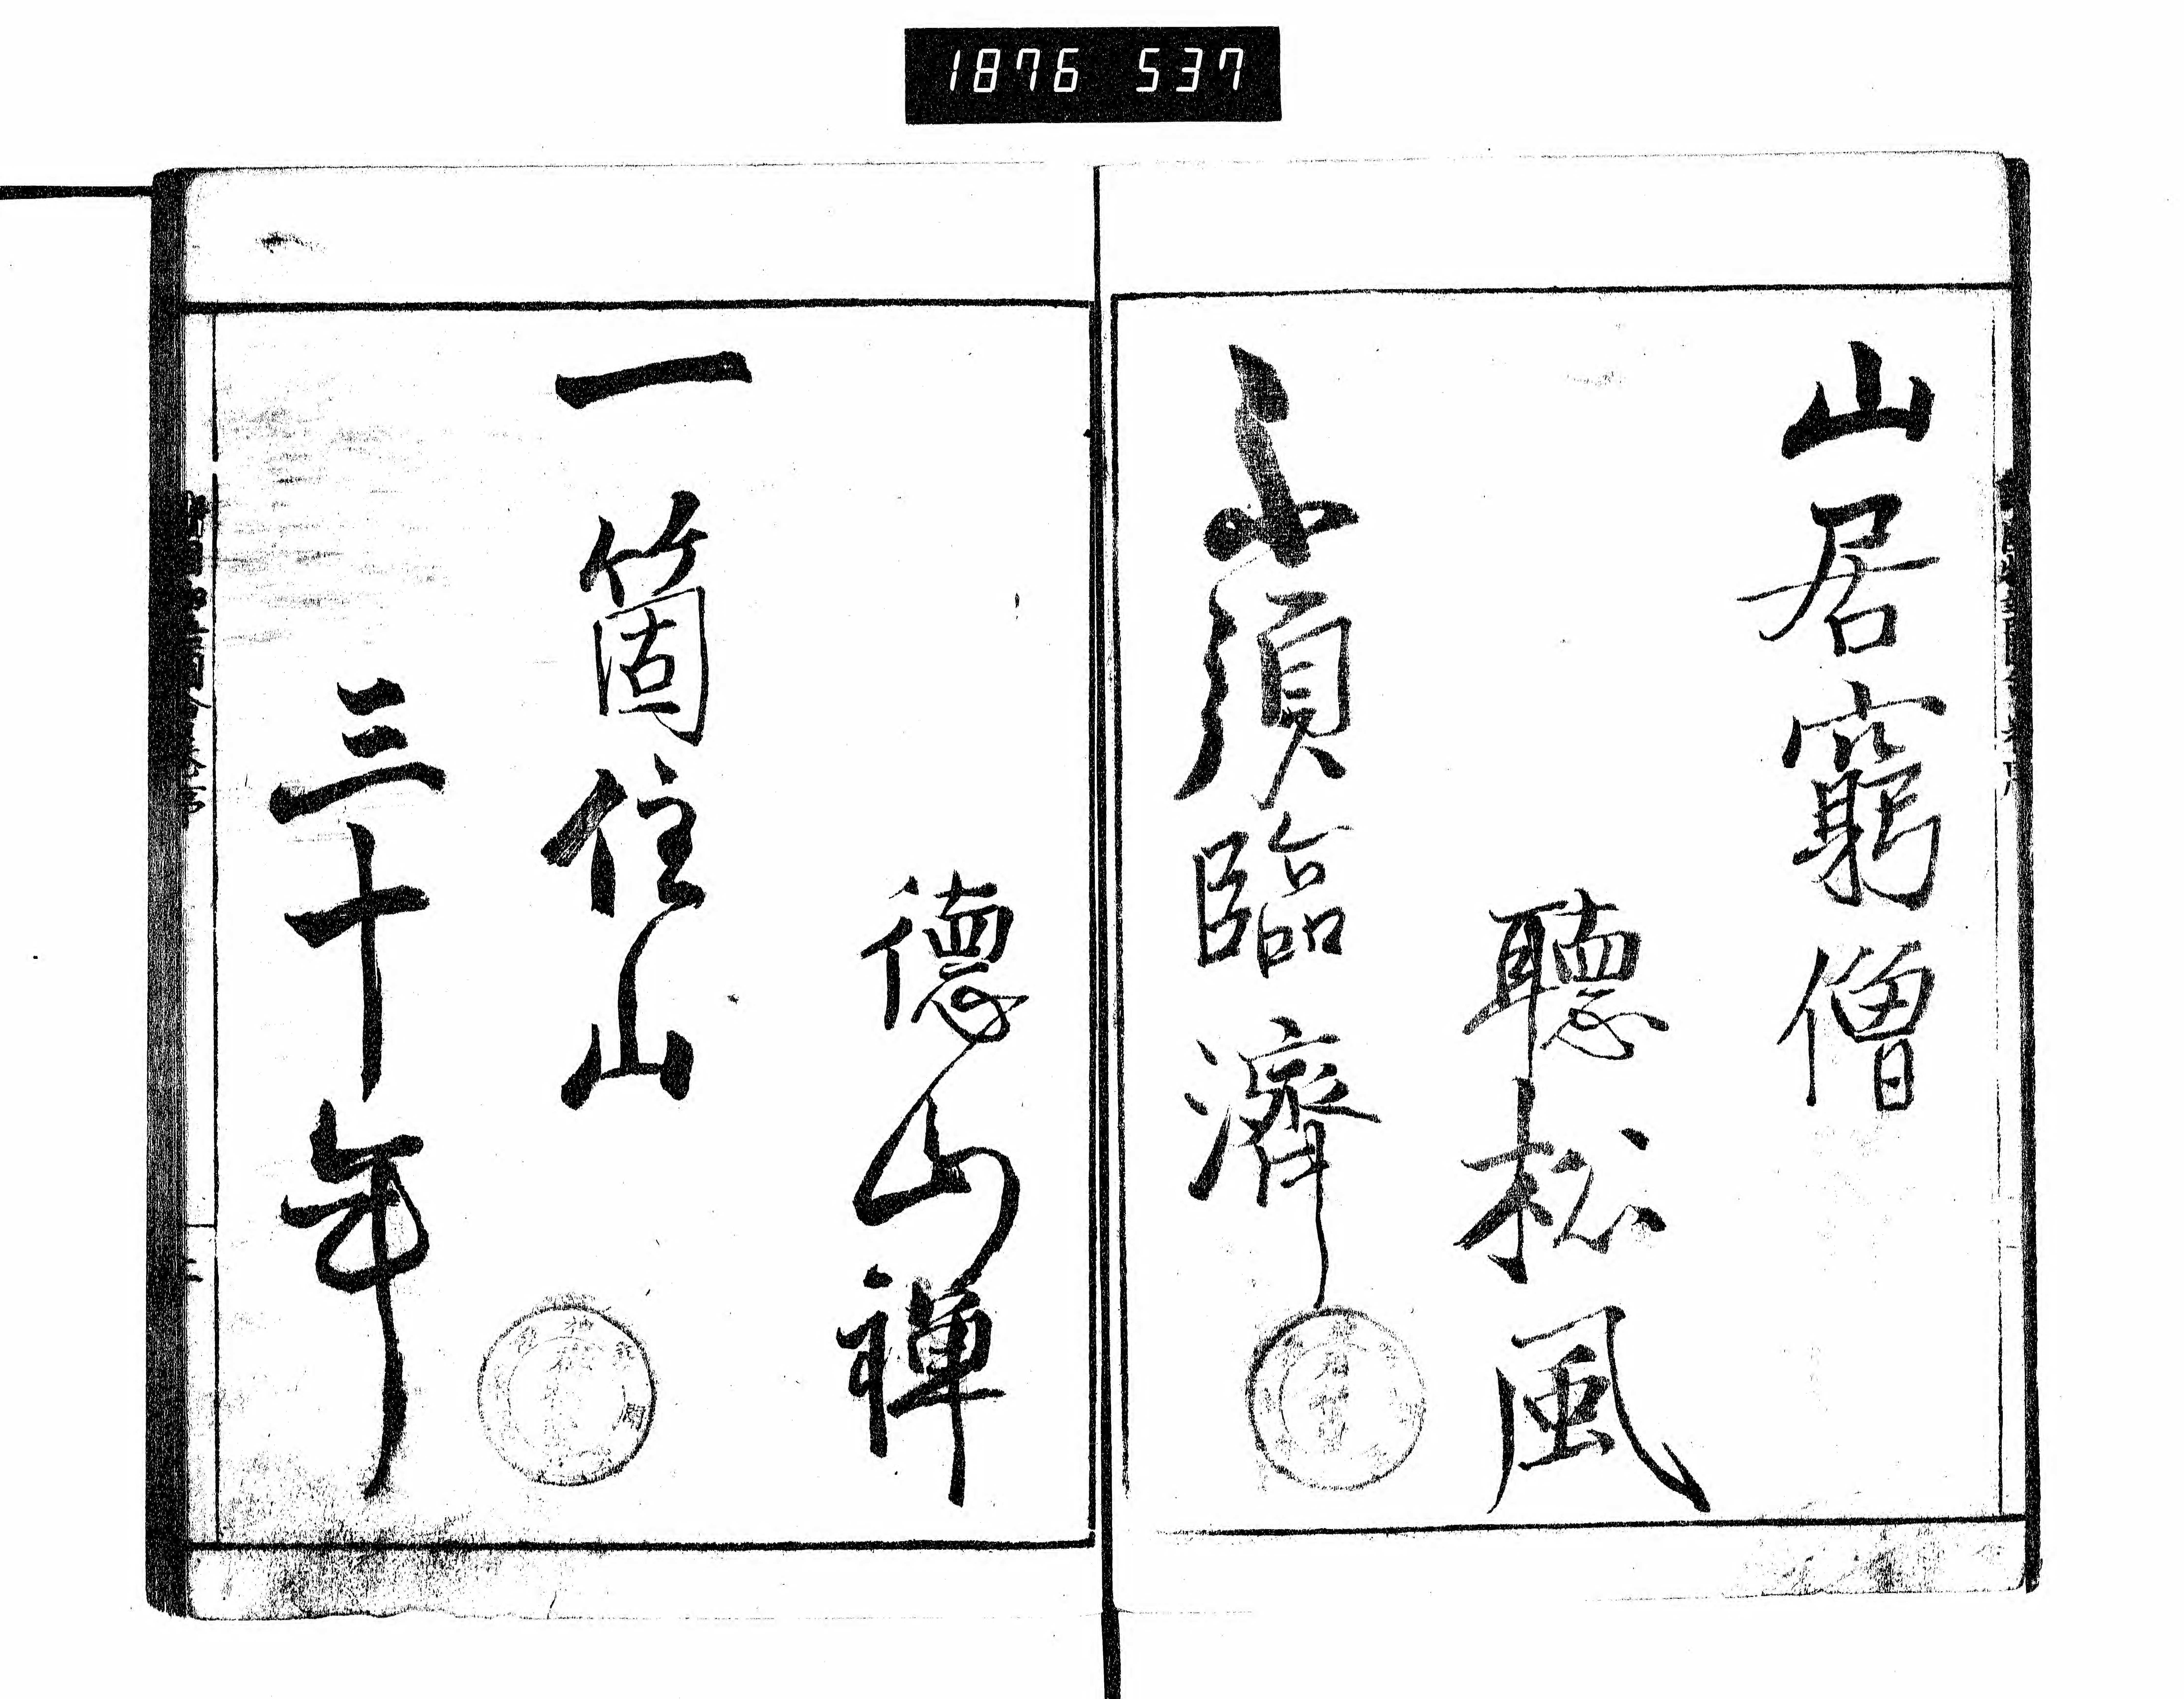 1876 537
山居窮僧
聽松風
不須臨濟
德山禪
一箇住山
三十年